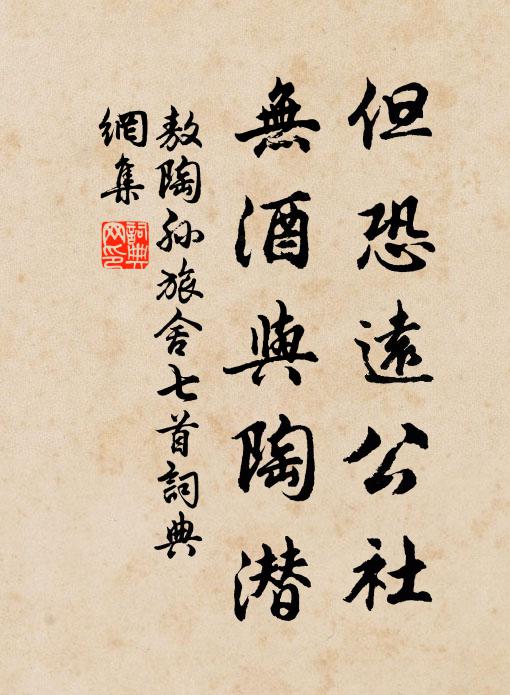 但恐遠公社
無酒與陶潜
敖陶孙旅舍七首詞典
網集
詞典
网印